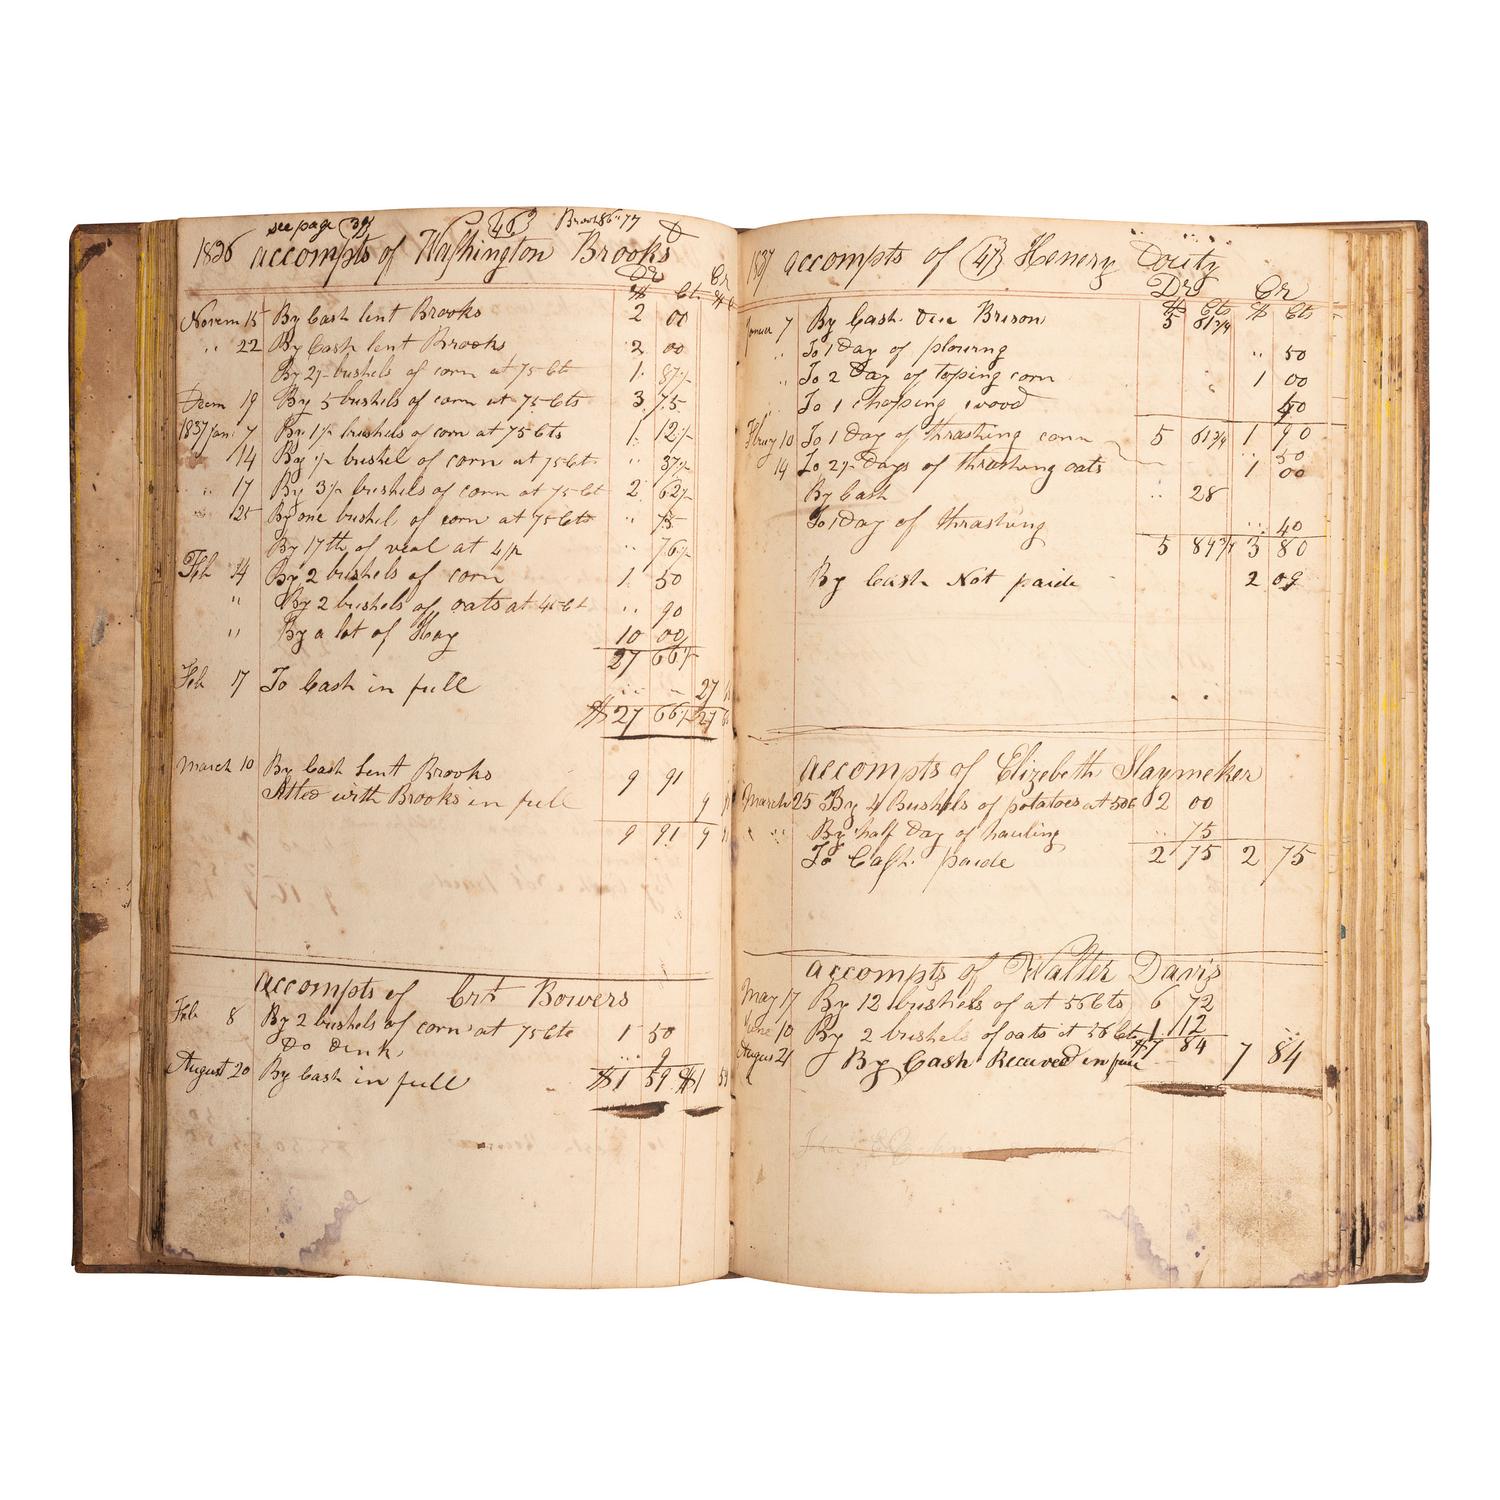 see page 39 46 Brook 86·77
1836 accompts of Washington Brooks D
Dr Cr
$ Ct. $
Novem 15 By Cash lent Brooks 2 00
" 22 By Cash lent Brooks 2 00
By 2½ bushels of corn at 75 Ct 1. 87½
Decm 19 By 5 bushels of corn at 75 Cts 3 75
1837 Jan 7 By 1½ bushels of corn at 75 Cts 1. 12½
14 By ½ bushel of corn at 75 Ct " 37½
" 17 By 3½ bushels of corn at 75 Ct 2 62½
" 25 By one bushel of corn at 75 Cts " 75
By 17 lb of veal at 4½ " 76½
Feb 14 By 2 bushels of corn 1. 50
" By 2 bushels of oats at 45 Ct " 90
" By a lot of Hay 10 00
27 66½
Feb 17 To Cash in full " " 27
$ 27 66½ 27
March 10 By Cash Lent Brooks 9 91
with Brooks in full 9
9 91 9
accompts of Bowers
Feb 8 By 2 bushels of corn at 75 Cts 1 50
Do 9
August 20 By Cash in full $1 59 $1 59
1837 accompts of 47 Henery Douty
Dr Cr
$ Cts $ Cts
7 By Cash Due Brison 5 61¾
" To 1 Day of plowing " 50
" To 2 Day of toping corn 1 00
" To 1 choping wood 40
10 To 1 Day of thrashing corn 5 61¾ 1 90
50
14 To 2½ Days of thrashing oats 1 00
By Cash " 28
To 1 Day of thrashing " 40
5 89¾ 3 80
By Cash Not paide 2 09
accompts of Elizebeth Slaymeker
March 25 By 4 Bushels of potatoes at 50c 2 00
" By half Day of hauling " 75
To Cash paide 2 75 2 75
accompts of Walter Davis
May 17 By 12 bushels of at 56 Cts 6 72
June 10 By 2 bushels of oats at 56 Cts 1 12
$7 84
August 21 By Cash Received in full 7 84